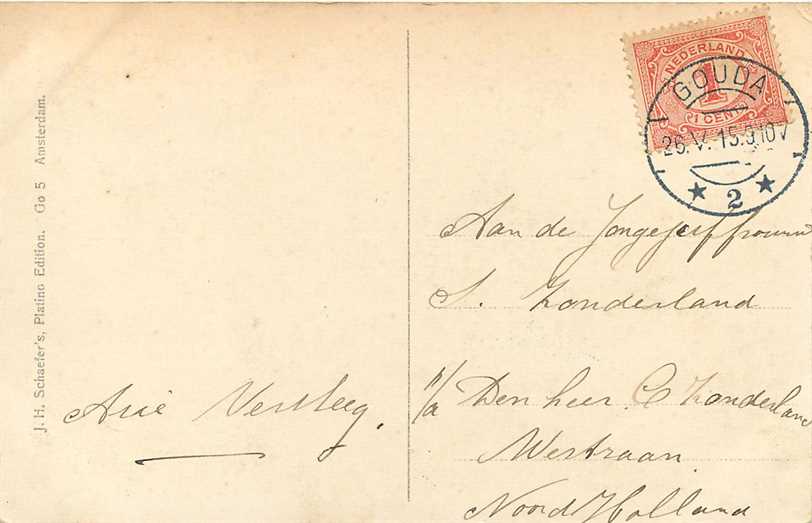 J. H. Schaefer's, Platino Edition. Go 5 Amsterdam.
Arie Versteeg.
NEDERLAND
1
1 CENT
GOUDA
26.V.15.9.10V
★ 2 ★
Aan de Jongejuffrouw
S. Zonderland
p/a Den heer C Zonderland
Westraan
Noord Holland